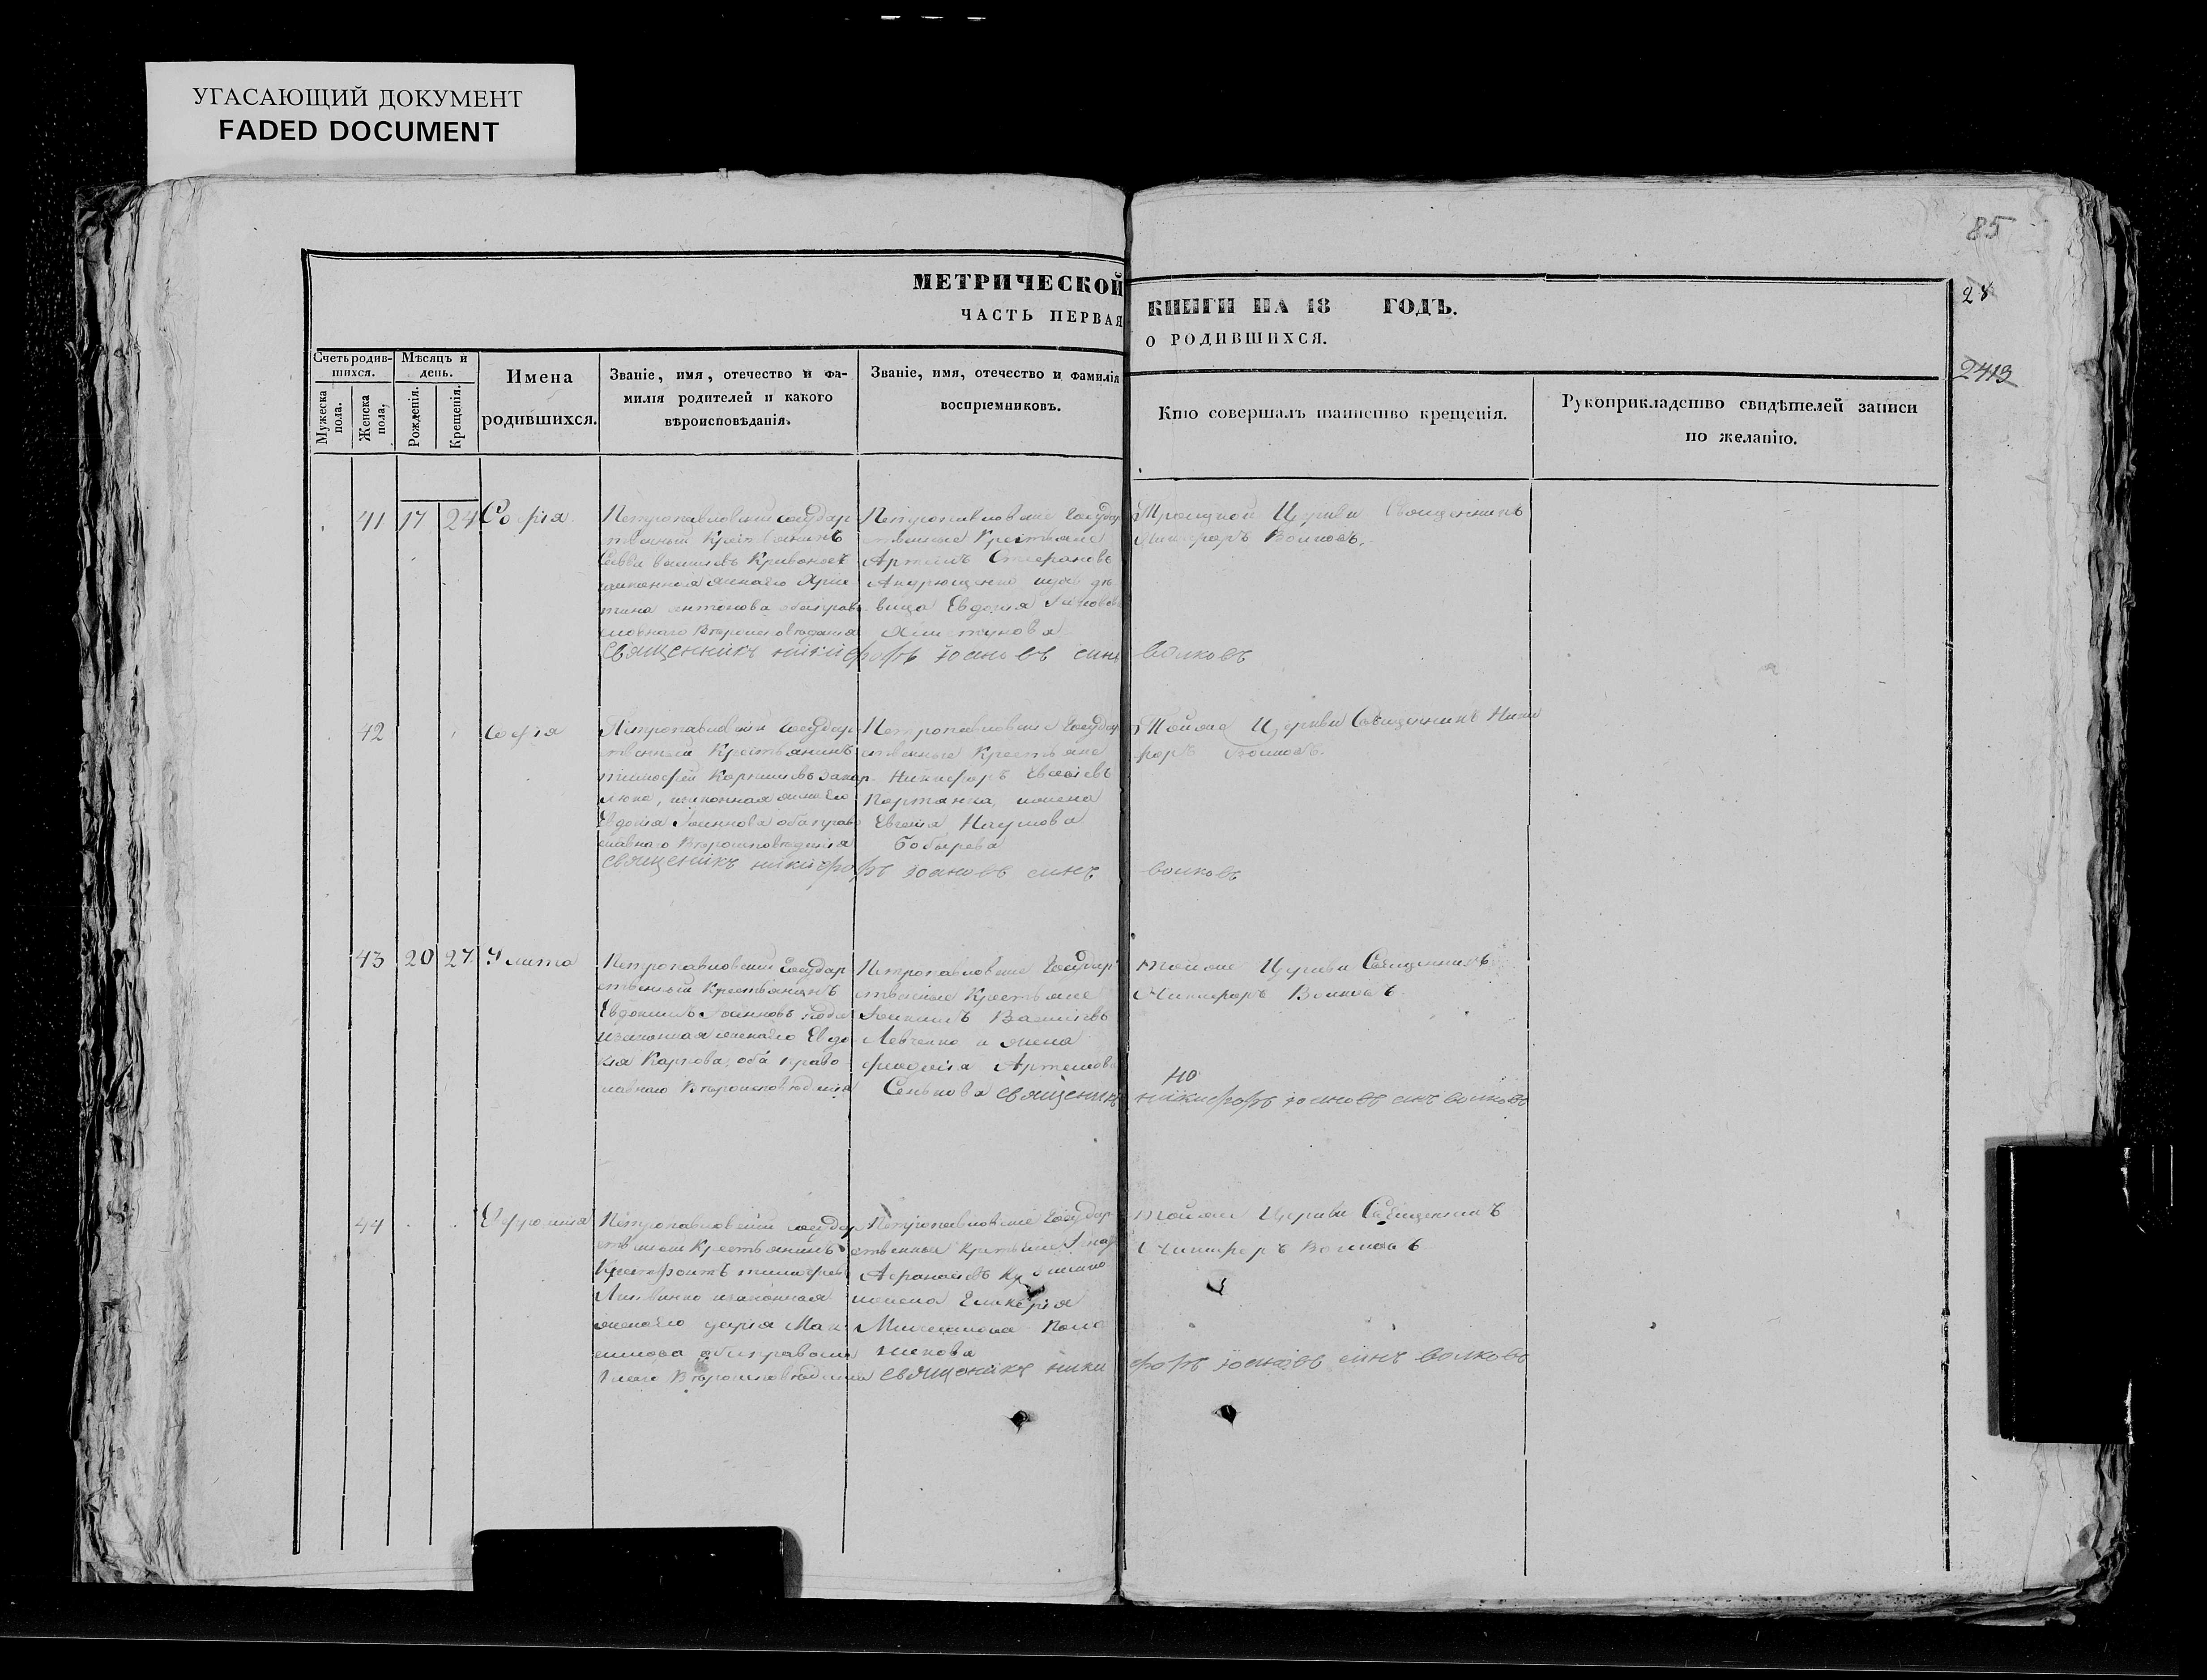 УГАСАЮЩИЙ ДОКУМЕНТ
FADED DOCUMENT
85
МЕТРИЧЕСКОЙ КНИГИ НА 18 ГОДЪ.
28
ЧАСТЬ ПЕРВАЯ О РОДИВШИХСЯ.
2413
Счетъ родив-
шихся.
Мужеска
пола.
Женска
пола,
Мѣсяцъ и
день.
Рожденія.
Крещенія.
Имена
родившихся.
Званіе, имя, отечество и фа-
милія родителей и какого
вѣроисповѣданія.
Званіе, имя, отечество и фамилія
воспріемниковъ.
Кто совершалъ таинство крещенія.
Рукоприкладство свидѣтелей записи
по желанію.
41 17 24 Софія
Петропавловскій государ
ственный Крестьянинъ
Савва
законная жена его Хрис
тина Антонова оба право
славнаго Вѣроисповѣданія
Петропавловские Государ
ственные Крестьяне
Артемъ Стефановъ
Андрющенко и дѣ
вица Евдокія
Троицкой Церкви Священникъ
Никифоръ Волковъ.
священникъ никифоръ іоановъ синъ волковъ
42 Софія
Петропавловскій государ
ственный Крестьянинъ
тимофей Корниліевъ
законная жена его
Евдокія Іоаннова оба право
славнаго Вѣроисповѣданія
Петропавловские Государ
ственные Крестьяне
Никифоръ Евсеіевъ
Портянка, и жена
Евгенія Наумова
Бобырева
Тойже Церкви Священникъ Ники
форъ Волковъ.
священикъ никифоръ іоановъ синъ волковъ
43 20 27 Улита
Петропавловский Государ
ственный Крестьянинъ
Евдокимъ Іоанновъ
и законная жена его Евдо
кія Карпова, оба право
славнаго Вѣроисповѣданія
Петропавловские Государ
ственные Крестьяне
Іоакимъ Василіевъ
Левченко и жена
феодосія Артемова
Сенькова
тойже Церкви Священникъ
Никифоръ Волковъ
но
священикъ никифоръ іоановъ синъ волковъ
44 Ефросинія
Петропавловскій государ
ственный Крестьянинъ
Ксенофонтъ тимофѣевъ
Литвинко и законная
жена его Дарія Мак
симова оба православ
наго Вѣроисповѣданія
Петропавловские Государ
ственные Крестьяне
Афанасіевъ
и жена Гликерія
тойже Церкви Священникъ
Никифоръ Волковъ
священикъ никифоръ іоановъ синъ волковъ